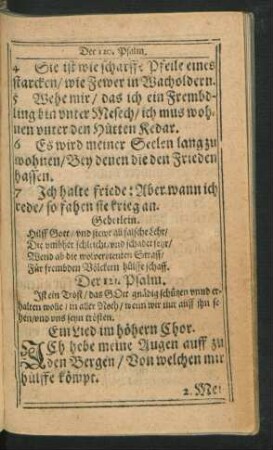 Der 120. Psalm.
4 Sie ist wie scharffe Pfeile eines
starcken/ wie Fewer in Wacholdern.
5 Wehe mir/ das ich ein Frembd-
ling bin vnter Mesech/ ich mus woh-
nen vnter den Hütten Kedar.
6 Es wird meiner Seelen lang zu
wohnen/ Bey denen die den Frieden
hassen.
7 Ich halte friede: Aber wann ich
rede/ so fahen sie krieg an.
Gebetlein.
Hilff Gott/ vnd stewr all falsche Lehr/
Die vmbher schleicht/ vnd schadet sehr/
Wend ab die wolverdienten Straff/
Für frembden Völckern hülffe schaff.
Der 121. Psalm.
Ist ein Trost/ das GOtt gnädig schützen vnnd er-
halten wolle/ in aller Noth/ wenn wir nur auff ihn se-
hen/ vnd vns seyn trösten.
Ein Lied im höhern Chor.
ICh hebe meine Augen auff zu
den Bergen/ Von welchen mir
hülffe kömpt.
2. Mei